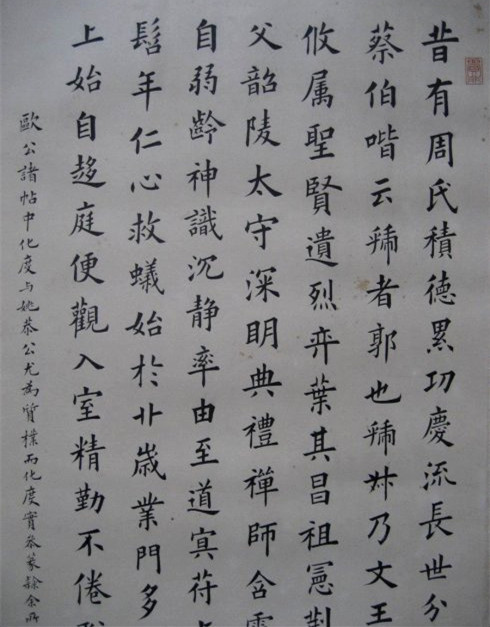 昔有周氏積德累功慶流長世分
蔡伯喈云虢者郭也虢叔乃文王
攸属聖賢遺烈弈葉其昌祖憲荆
父韶陵太守深明典禮禪師含
自弱齡神識沉静率由至道冥苻
髫年仁心救蟻始於丱歲業門多
上始自趍庭便觀入室精勤不倦
歐公諸帖中化度与姚恭公尤為質樸而化度實參篆隸余所